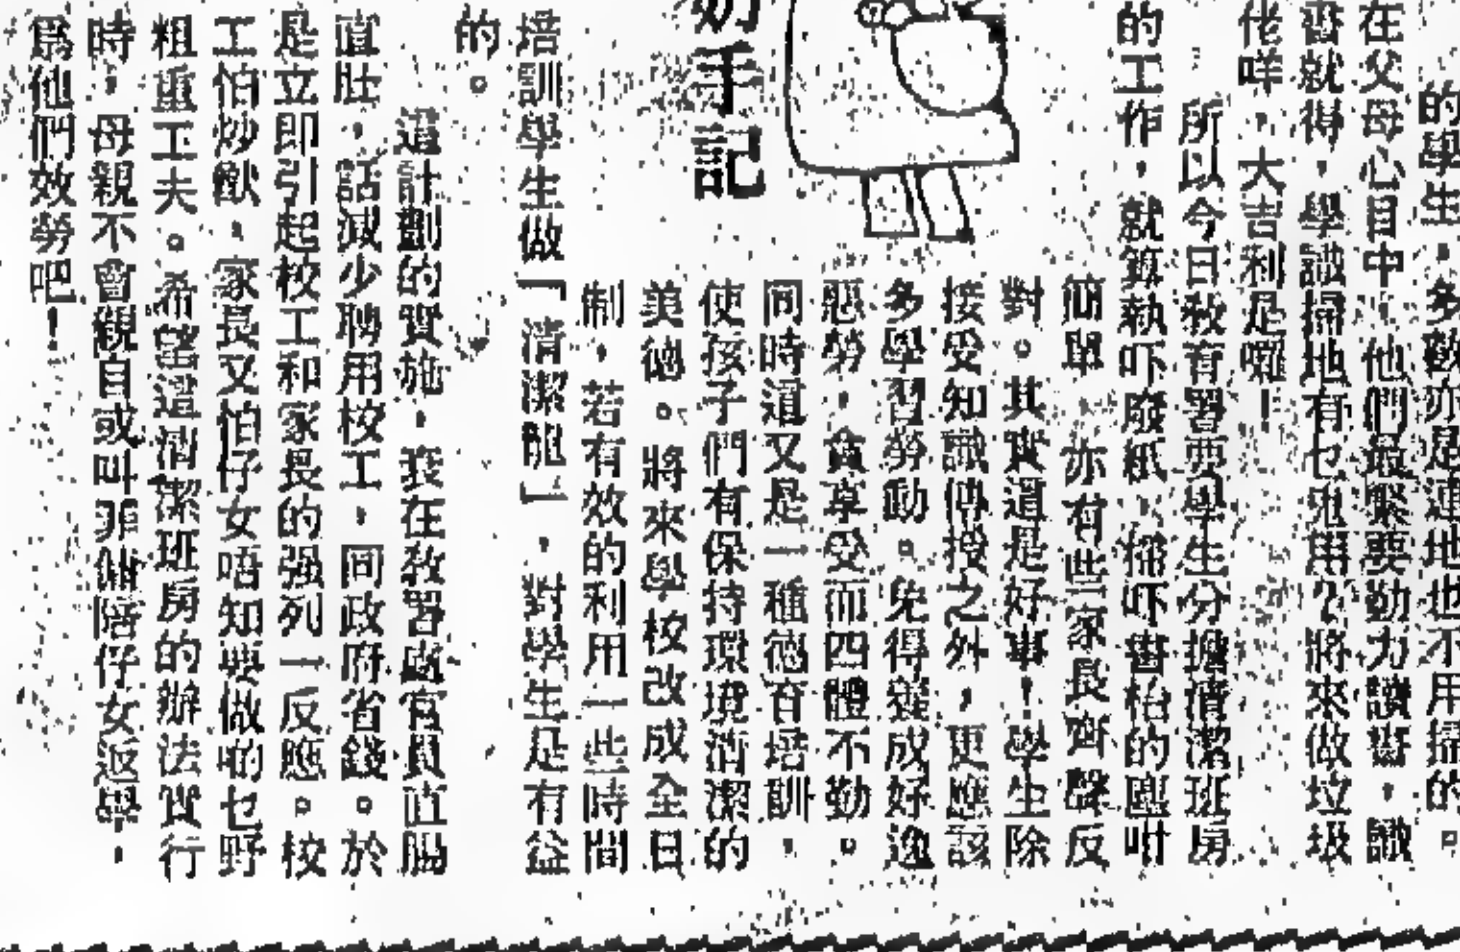 的學生，多數亦是連地也不用掃的。
在父母心目中，他們最緊要勤力讀書，識
書就得，學識掃地有乜鬼用？將來做垃圾
佬咩，大吉利是囉！
所以今日教育署要學生分擔清潔班房
的工作，就算執吓廢紙，掃吓書枱的塵咁
簡單，亦有些家長齊聲反
對。其實這是好事！學生除
接受知識傳授之外，更應該
多學習勞動。免得養成好逸
惡勞，貪享受而四體不勤。
同時這又是一種德育培訓，
使孩子們有保持環境清潔的
美德。將來學校改成全日
制，若有效的利用一些時間
手記
培訓學生做「清潔龍」，對學生是有益
的。
這計劃的實施，衰在敎署處官員直腸
直肚，話減少聘用校工，同政府省錢。於
是立即引起校工和家長的强列一反應。校
工怕炒魷，家長又怕仔女唔知要做啲乜野
粗重工夫。希望這清潔班房的辦法實行
時，母親不會親自或叫菲傭陪仔女返學，
爲他們效勞吧！